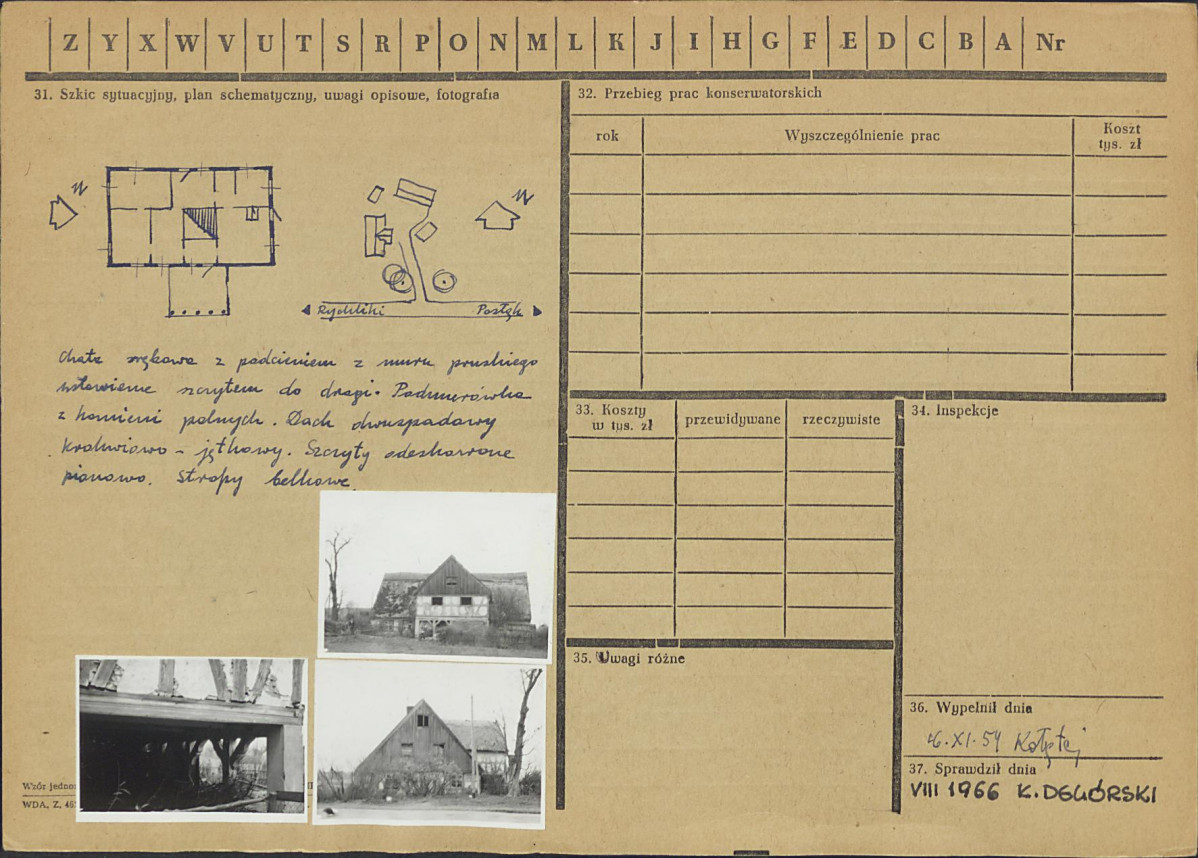 Z Y X W V U T S R P O N M L K J I H G F E D C B A Nr
31. Szkic sytuacyjny, plan schematyczny, uwagi opisowe, fotografia
N
N
Rychliki
Pasłęk
Chata zrębowa z podcieniem z muru pruskiego
ustawiona szczytem do drogi. Podmurówka
z kamieni polnych. Dach dwuspadowy
krokwiowo - jętkowy. Szczyty odeskowane
pionowo. Stropy belkowe.
Wzór jedno
WDA. Z. 46
32. Przebieg prac konserwatorskich
rok
Wyszczególnienie prac
Koszt
tys. zł
33. Koszty
w tys. zł
przewidywane
rzeczywiste
34. Inspekcje
35. Uwagi różne
36. Wypełnił dnia
XI.59
37. Sprawdził dnia
VIII 1966 K. DEGÓRSKI